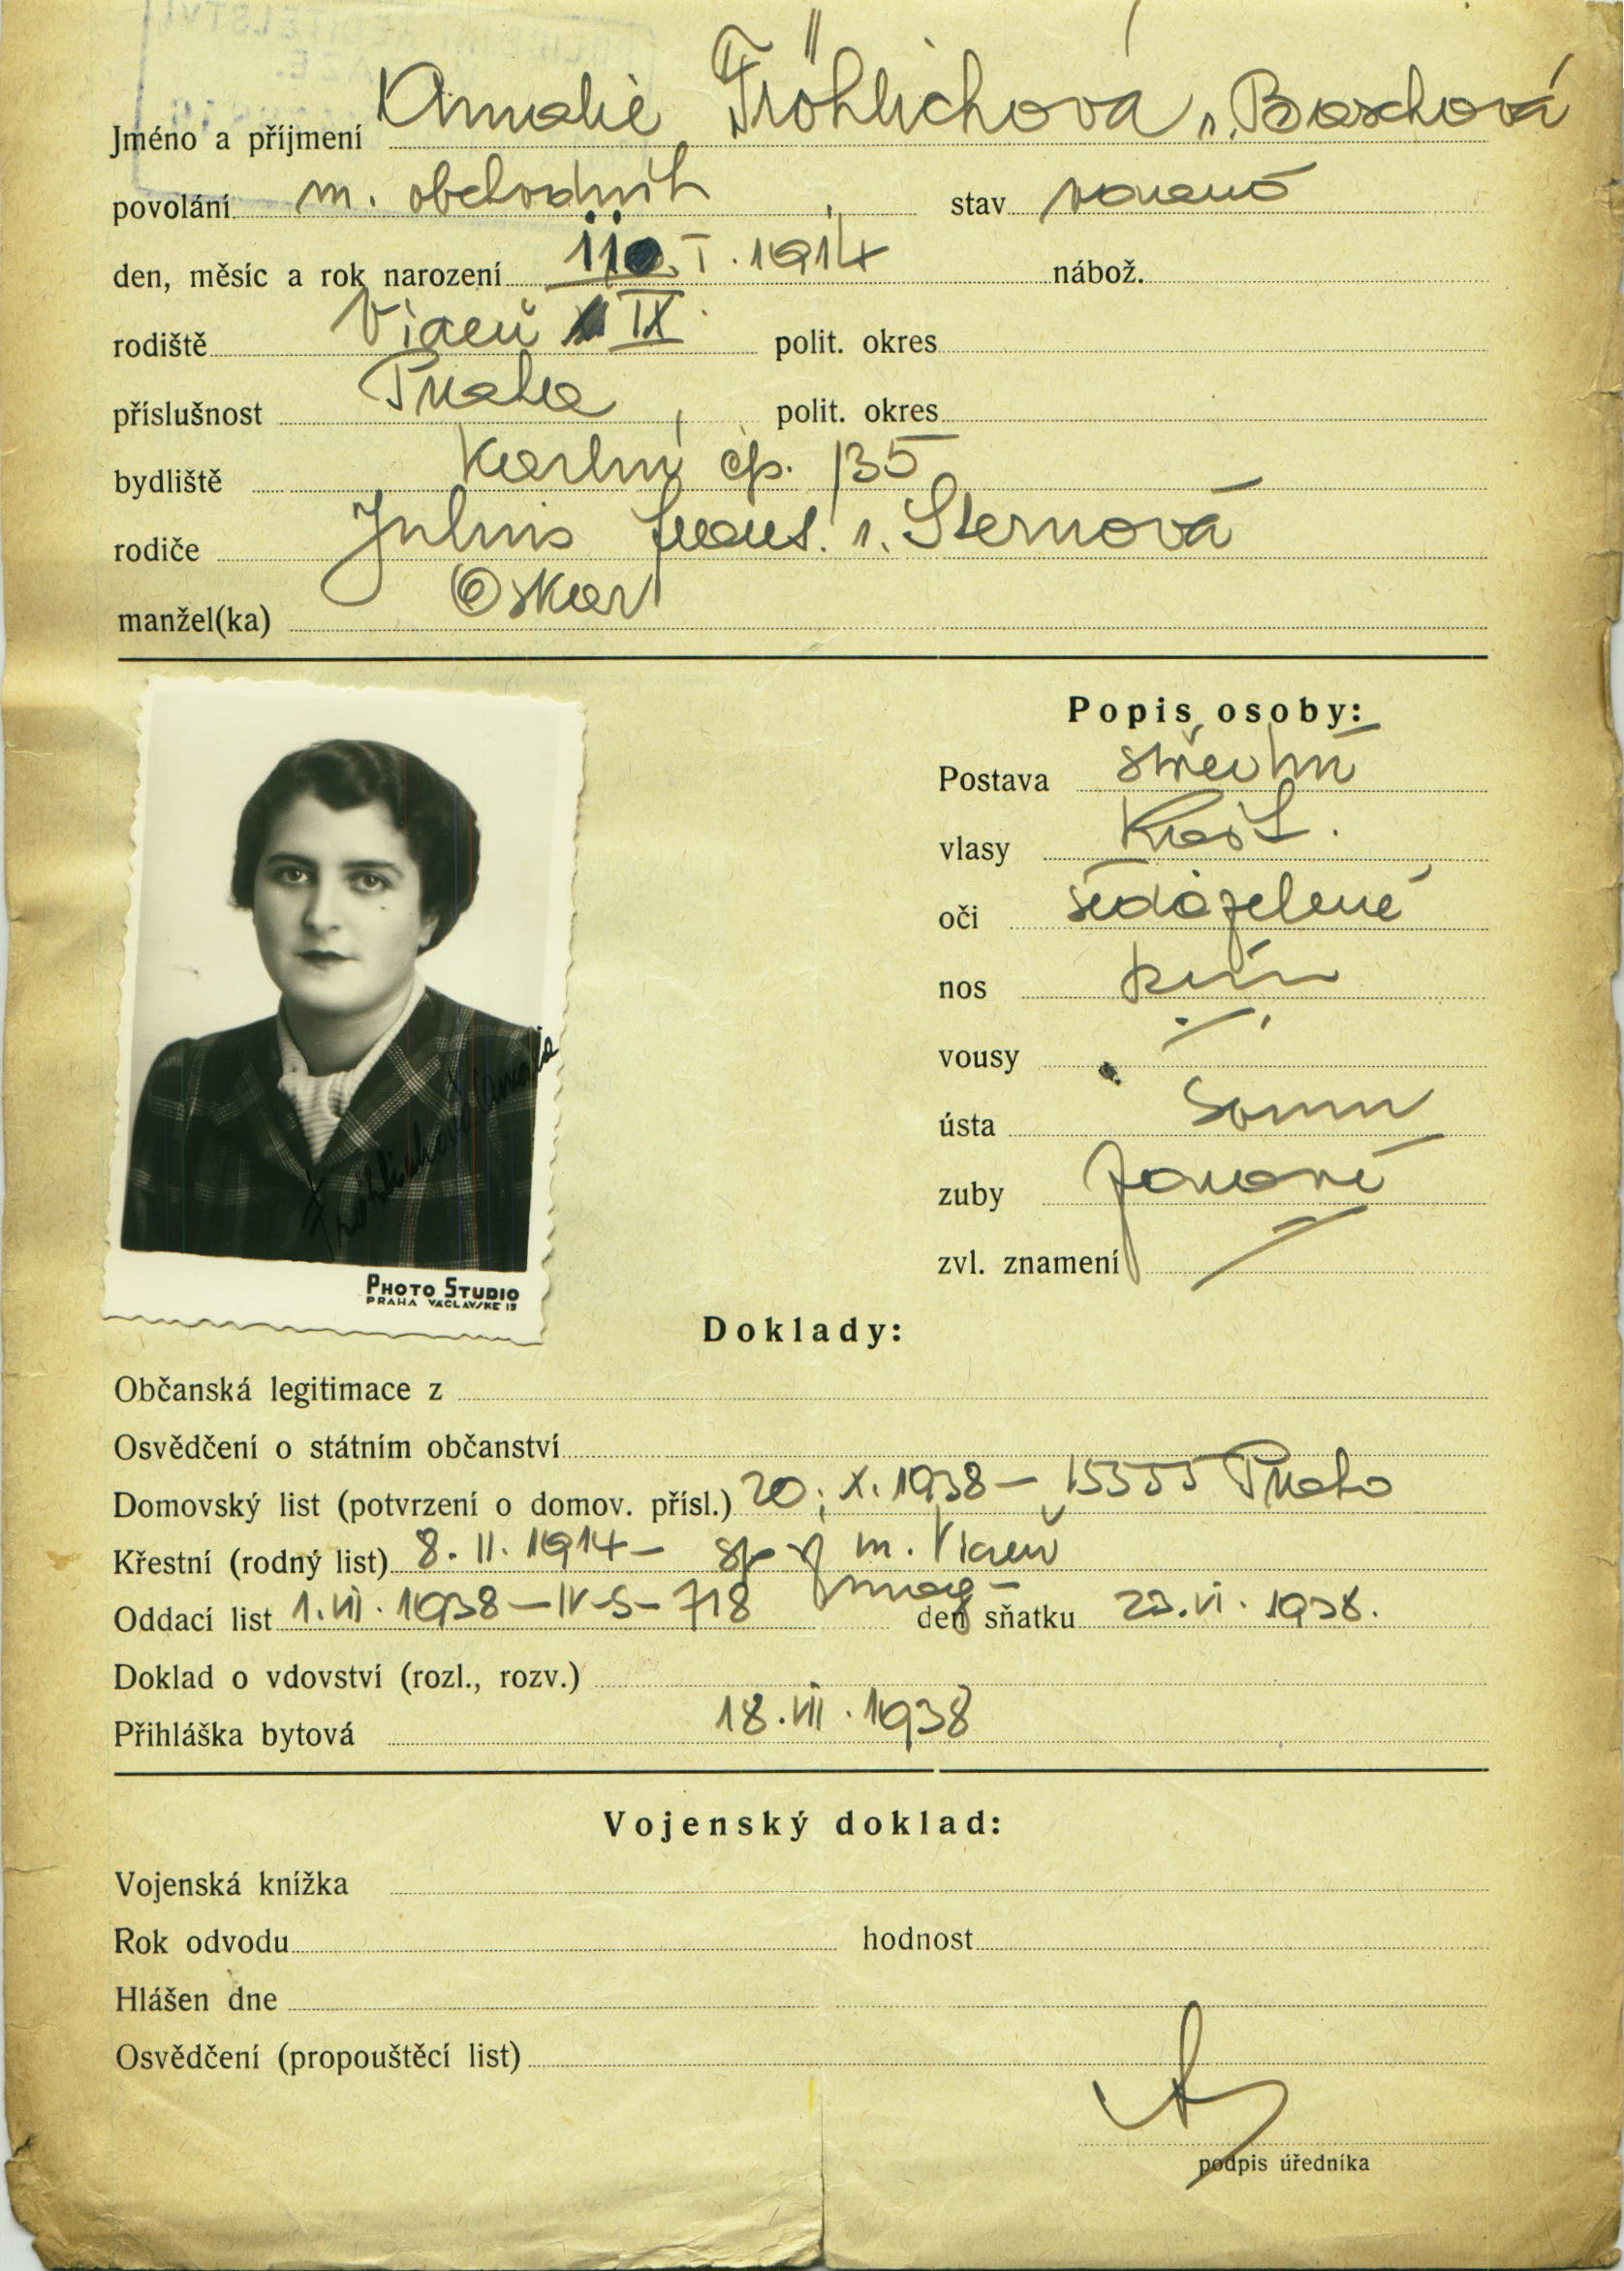 Jméno a příjmení Amalie Fröhlichová r. Baschová
povolání m. obchodník stav vdaná
den, měsíc a rok narození I. 1914 nábož.
rodiště Vídeň IX
polit. okres
příslušnost Praha, polit. okres
bydliště Karlín čp. 135
rodiče Julius r. Sternová
manžel(ka) Oskar
Popis osoby:
Postava střední
vlasy kašt.
oči šedozelené
nos
vousy
ústa
zuby
zvl. znamení
Fröhlichová Amalie
PHOTO STUDIO
PRAHA VÁCLAVSKÉ 15
Doklady:
Občanská legitimace z
Osvědčení o státním občanství
Domovský list (potvrzení o domov. přísl.) 20. X. 1938 – 15355 Praha
Křestní (rodný list) 8. II. 1914 – m. Vídeň
Oddací list 1. VII. 1938 – IV-S-718 den sňatku VI. 1938.
Doklad o vdovství (rozl., rozv.)
Přihláška bytová 18. VII. 1938
Vojenský doklad:
Vojenská knížka
Rok odvodu hodnost
Hlášen dne
Osvědčení (propouštěcí list)
podpis úředníka